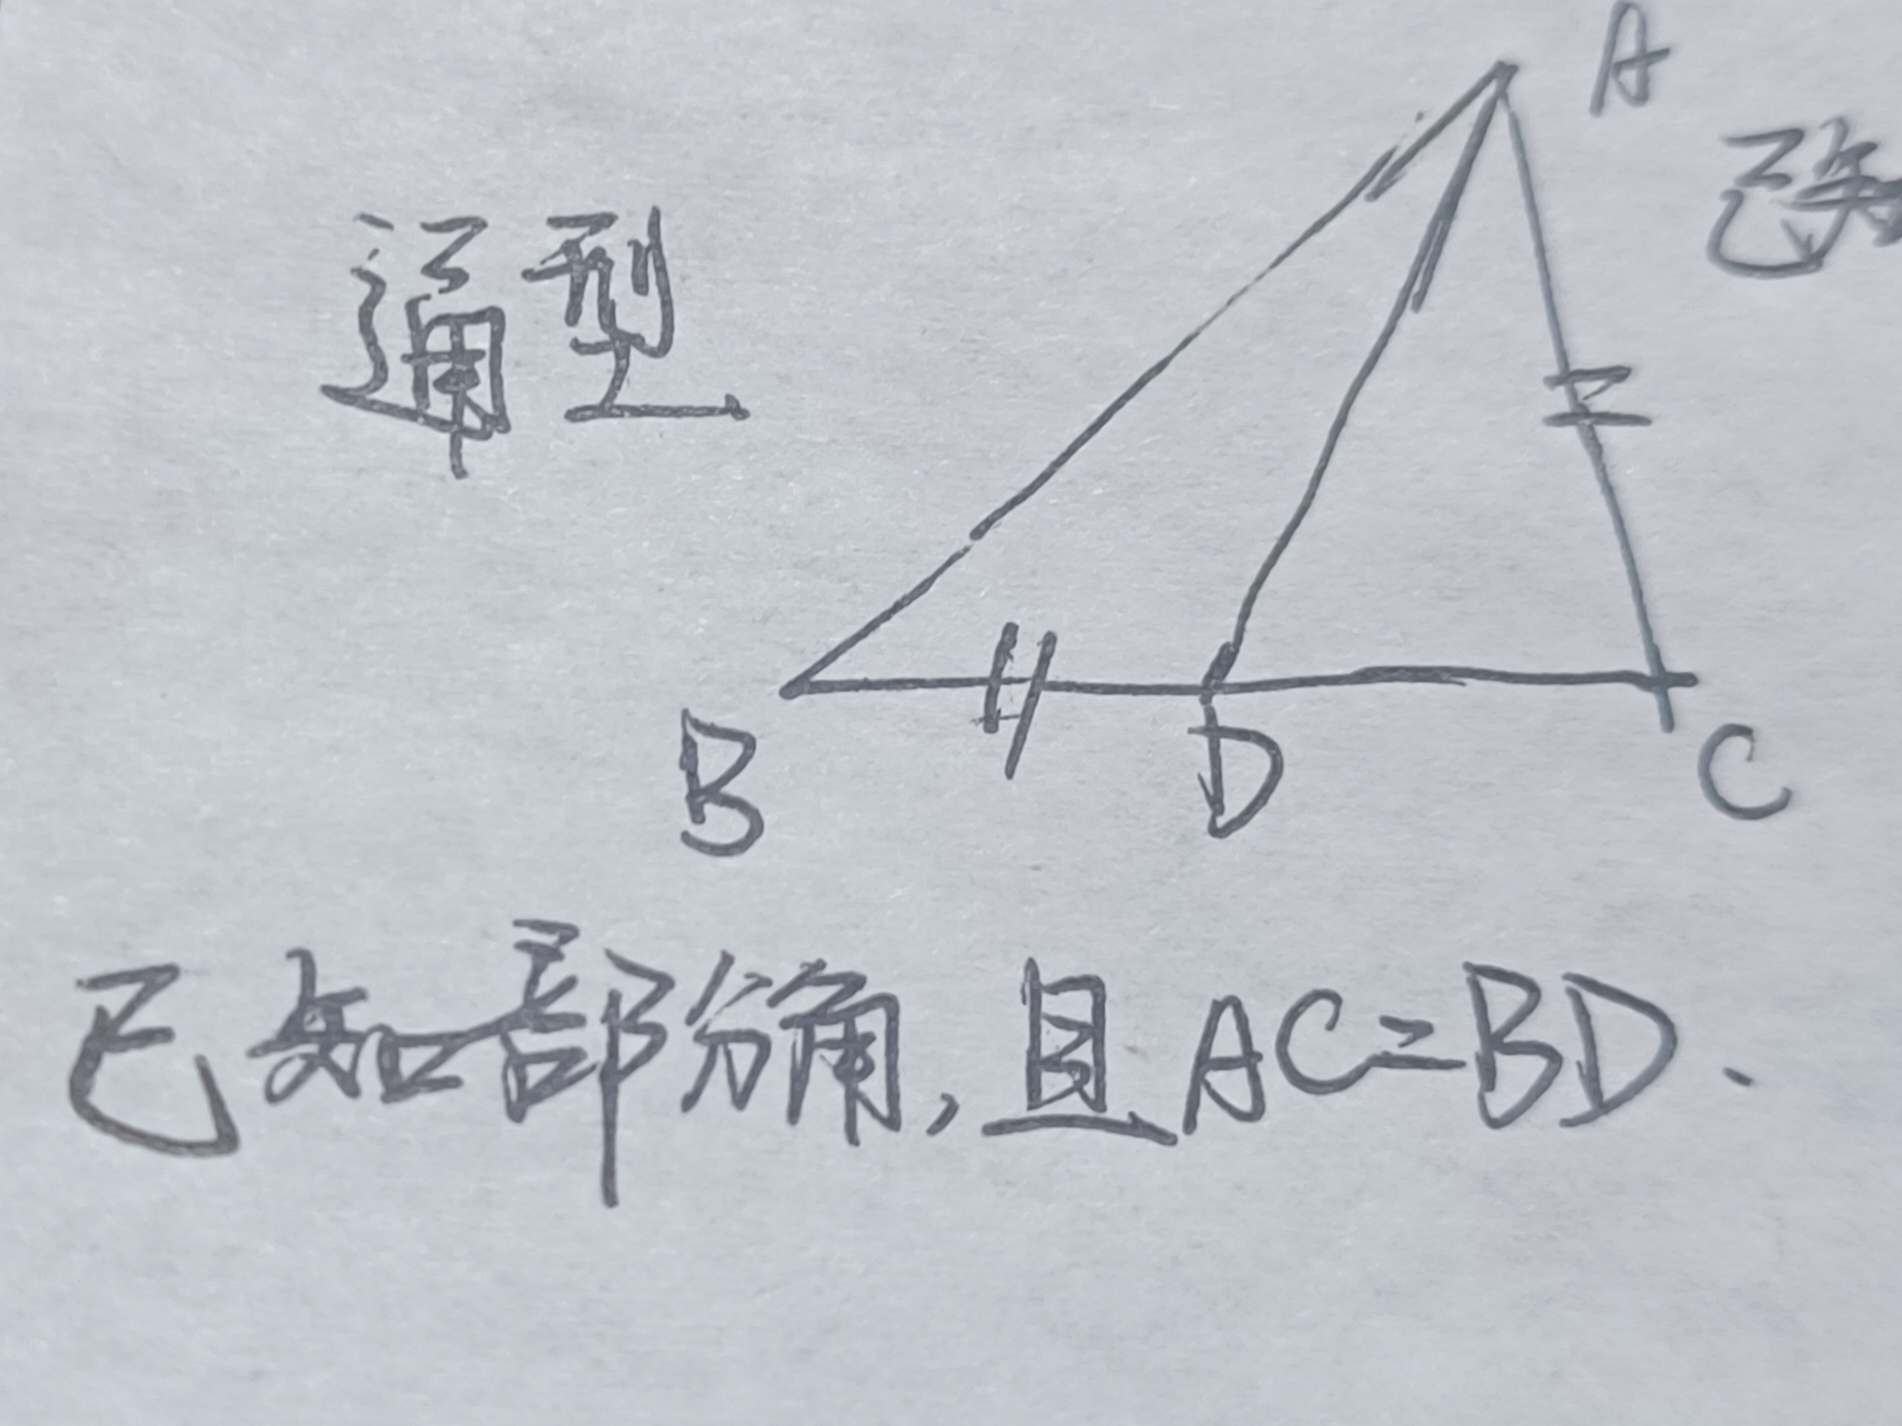 A
已知
通型
B
D
C
已知部分角,且AC=BD.